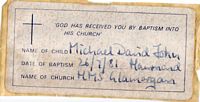 'GOD HAS RECEIVED YOU BY BAPTISM INTO
HIS CHURCH'
NAME OF CHILD Michael David John
DATE OF BAPTISM 26/7/81
NAME OF CHURCH HMS Glamorgan